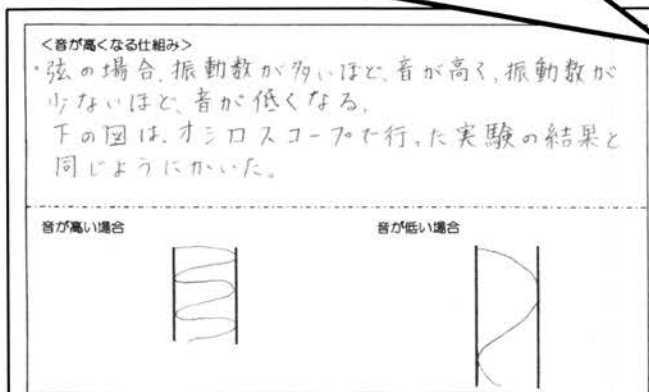 <音が高くなる仕組み>
・弦の場合、振動数が多いほど、音が高く、振動数が
少ないほど、音が低くなる。
下の図は、オシロスコープで行った実験の結果と
同じようにかいた。
音が高い場合
音が低い場合